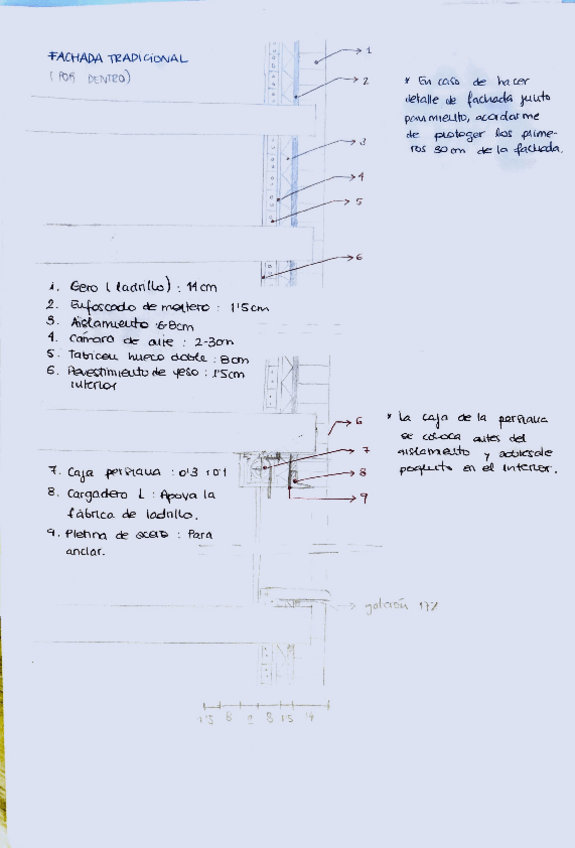 FACHADA TRADICIONAL
(POR DENTRO)
1
2
3
4
5
6
* En caso de hacer
detalle de fachada junto
pavimiento, acordarme
de proteger los prime-
ros 30cm de la fachada.
1. Gero (ladrillo) : 14cm
2. Enfoscado de mortero : 1'5cm
3. Aislamiento 6-8cm
4. Cámara de aire : 2-3cm
5. Tabicón hueco doble : 8cm
6. Revestimiento de yeso : 1'5cm
interior
6
7
8
9
* La caja de la persiana
se coloca antes del
aislamiento y sobresale
poquito en el interior.
7. Caja persiana : 0'3 x 0'1
8. Cargadero L : Apoya la
fábrica de ladrillo.
9. Pletina de acero : Para
anclar.
1'5 8 2 8 1'5 14